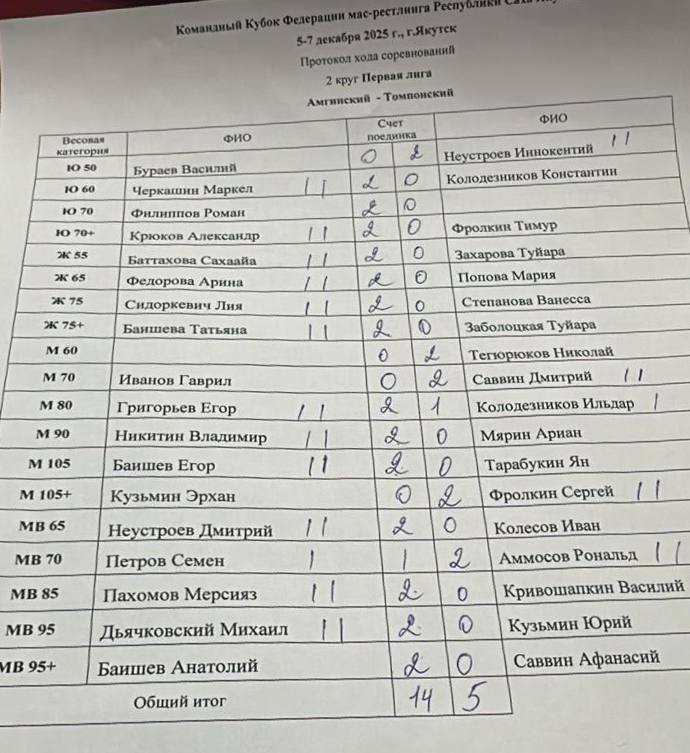 Командный Кубок Федерации мас-рестлинга Республики Саха
5-7 декабря 2025 г., г.Якутск
Протокол хода соревнований
2 круг Первая лига
Амгинский - Томпонский
Весовая категория ФИО Счет поединка ФИО
Ю 50 Бураев Василий 0 2 Неустроев Иннокентий ||
Ю 60 Черкашин Маркел || 2 0 Колодезников Константин
Ю 70 Филиппов Роман 2 0
Ю 70+ Крюков Александр || 2 0 Фролкин Тимур
Ж 55 Баттахова Сахаайа || 2 0 Захарова Туйара
Ж 65 Федорова Арина || 2 0 Попова Мария
Ж 75 Сидоркевич Лия || 2 0 Степанова Ванесса
Ж 75+ Баишева Татьяна || 2 0 Заболоцкая Туйара
М 60 0 2 Тегюрюков Николай
М 70 Иванов Гаврил 0 2 Саввин Дмитрий ||
М 80 Григорьев Егор || 2 1 Колодезников Ильдар |
М 90 Никитин Владимир || 2 0 Мярин Ариан
М 105 Баишев Егор || 2 0 Тарабукин Ян
М 105+ Кузьмин Эрхан 0 2 Фролкин Сергей ||
МВ 65 Неустроев Дмитрий || 2 0 Колесов Иван
МВ 70 Петров Семен | 1 2 Аммосов Рональд ||
МВ 85 Пахомов Мерсияз || 2 0 Кривошапкин Василий
МВ 95 Дьячковский Михаил || 2 0 Кузьмин Юрий
МВ 95+ Баишев Анатолий 2 0 Саввин Афанасий
Общий итог 14 5